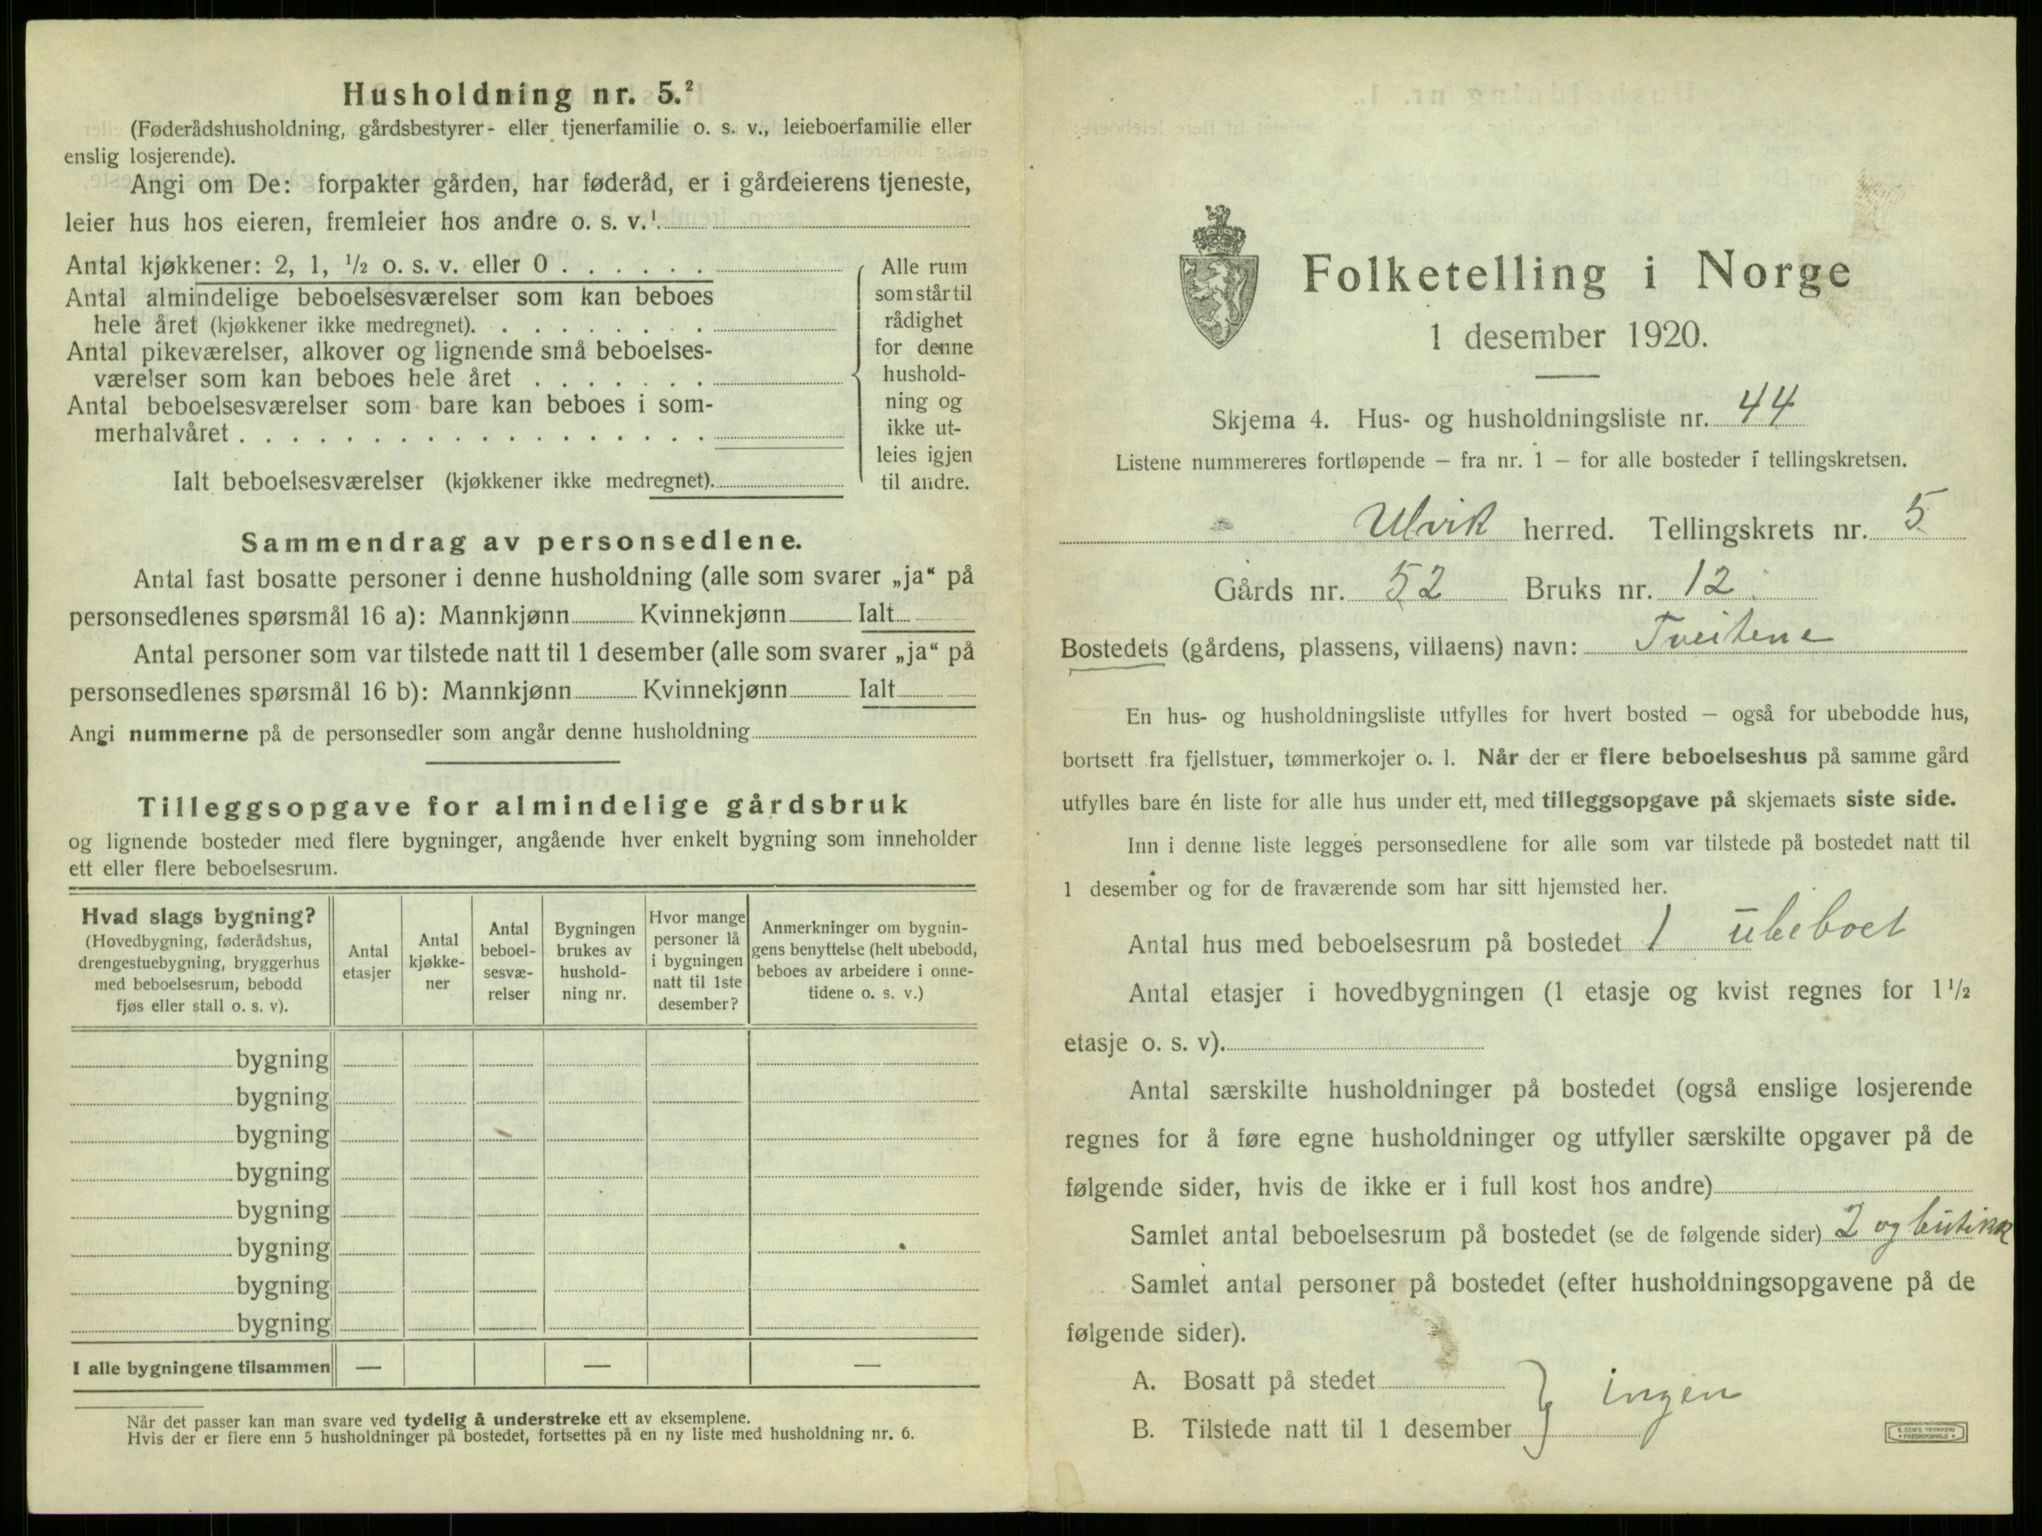 Husholdning nr. 5.²
(Føderådshusholdning, gårdsbestyrer- eller tjenerfamilie o. s. v., leieboerfamilie eller
enslig losjerende).
Angi om De: forpakter gården, har føderåd, er i gårdeierens tjeneste,
leier hus hos eieren, fremleier hos andre o. s. v.¹
Antal kjøkkener: 2, 1, ½ o. s. v. eller 0 . . . . . .
Antal almindelige beboelsesværelser som kan beboes
hele året (kjøkkener ikke medregnet). . . . . . . . .
Antal pikeværelser, alkover og lignende små beboelses-
værelser som kan beboes hele året . . . . . . .
Antal beboelsesværelser som bare kan beboes i som-
merhalvåret . . . . . . . . . . . . . . . . . .
Ialt beboelsesværelser (kjøkkener ikke medregnet).
Alle rum
som står til
rådighet
for denne
hushold-
ning og
ikke ut-
leies igjen
til andre.
Sammendrag av personsedlene.
Antal fast bosatte personer i denne husholdning (alle som svarer „ja“ på
personsedlenes spørsmål 16 a): Mannkjønn Kvinnekjønn Ialt
Antal personer som var tilstede natt til 1 desember (alle som svarer „ja“ på
personsedlenes spørsmål 16 b): Mannkjønn Kvinnekjønn Ialt
Angi nummerne på de personsedler som angår denne husholdning
Tilleggsopgave for almindelige gårdsbruk
og lignende bosteder med flere bygninger, angående hver enkelt bygning som inneholder
ett eller flere beboelsesrum.
Hvad slags bygning?
(Hovedbygning, føderådshus,
drengestuebygning, bryggerhus
med beboelsesrum, bebodd
fjøs eller stall o. s. v).
Antal
etasjer
Antal
kjøkke-
ner
Antal
beboel-
sesvæ-
relser
Bygningen
brukes av
hushold-
ning nr.
Hvor mange
personer lå
i bygningen
natt til 1ste
desember?
Anmerkninger om bygnin-
gens benyttelse (helt ubebodd,
beboes av arbeidere i onne-
tidene o. s. v.)
bygning
bygning
bygning
bygning
bygning
bygning
bygning
bygning
I alle bygningene tilsammen — — —
Når det passer kan man svare ved tydelig å understreke ett av eksemplene.
Hvis der er flere enn 5 husholdninger på bostedet, fortsettes på en ny liste med husholdning nr. 6.
Folketelling i Norge
1 desember 1920.
Skjema 4. Hus- og husholdningsliste nr. 44
Listene nummereres fortløpende – fra nr. 1 – for alle bosteder i tellingskretsen.
Ulvik herred. Tellingskrets nr. 5
Gårds nr. 52 Bruks nr. 12
Bostedets (gårdens, plassens, villaens) navn: Tveitene
En hus- og husholdningsliste utfylles for hvert bosted – også for ubebodde hus,
bortsett fra fjellstuer, tømmerkojer o. l. Når der er flere beboelseshus på samme gård
utfylles bare én liste for alle hus under ett, med tilleggsopgave på skjemaets siste side.
Inn i denne liste legges personsedlene for alle som var tilstede på bostedet natt til
1 desember og for de fraværende som har sitt hjemsted her.
Antal hus med beboelsesrum på bostedet 1 ubeboet
Antal etasjer i hovedbygningen (1 etasje og kvist regnes for 1½
etasje o. s. v).
Antal særskilte husholdninger på bostedet (også enslige losjerende
regnes for å føre egne husholdninger og utfyller særskilte opgaver på de
følgende sider, hvis de ikke er i full kost hos andre)
Samlet antal beboelsesrum på bostedet (se de følgende sider) 2 og butikk
Samlet antal personer på bostedet (efter husholdningsopgavene på de
følgende sider).
A. Bosatt på stedet
B. Tilstede natt til 1 desember
ingen